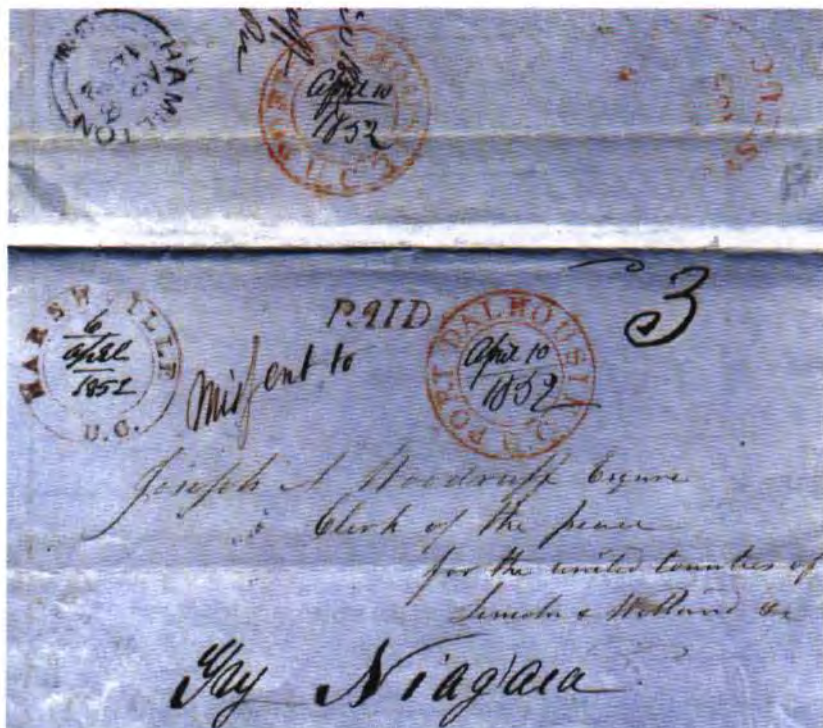 HAMILTON
April 10
1852
U.C.
MARSHVILLE
6
April
1852
U.C.
PAID
3
Missent to
PORT DALHOUSIE
April 10
1852
Joseph A Woodruff Esquire
Clerk of the peace
for the united Counties of
Lincoln & Welland &c
Niagara